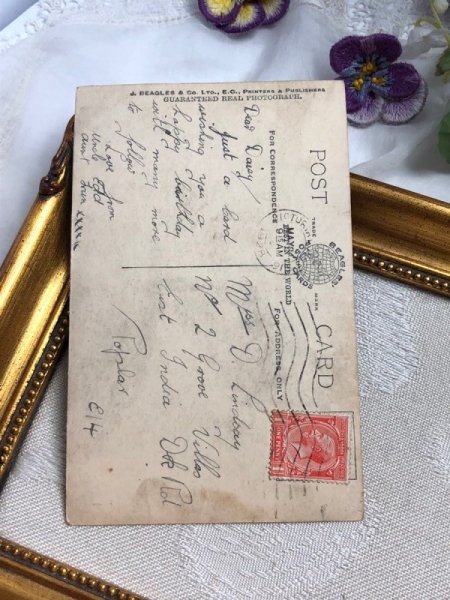 J. BEAGLES & CO. LTD., E.C., PRINTERS & PUBLISHERS
GUARANTEED REAL PHOTOGRAPH.
POST CARD
FOR CORRESPONDENCE
FOR ADDRESS ONLY
TRADE
MARK
BEAGLES
POSTCARDS
IN THE WORLD
9 15 AM
Dear Daisy
Just a card
wishing you a
happy birthday
with many more
to follow
Love from
Uncle
Aunt
xxxxx
Miss D. Lindsay
No 2 Grove Villas
East India Dk Rd
Poplar
E14